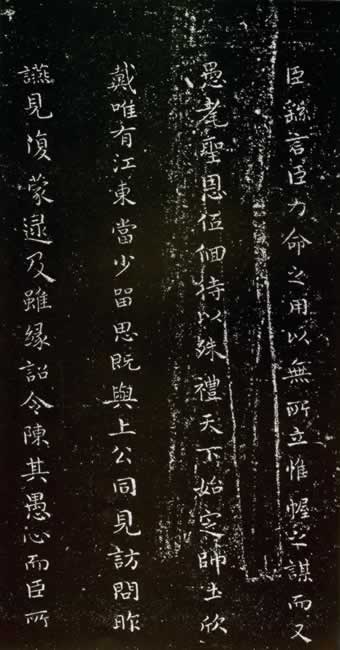 臣繇言臣力命之用以無所立惟幄之謀而又
愚耄聖恩低佪待以殊禮天下始定帥土欣
戴唯有江東當少留思既與上公同見訪問昨
讌見復蒙逮及雖緣詔令陳其愚心而臣所